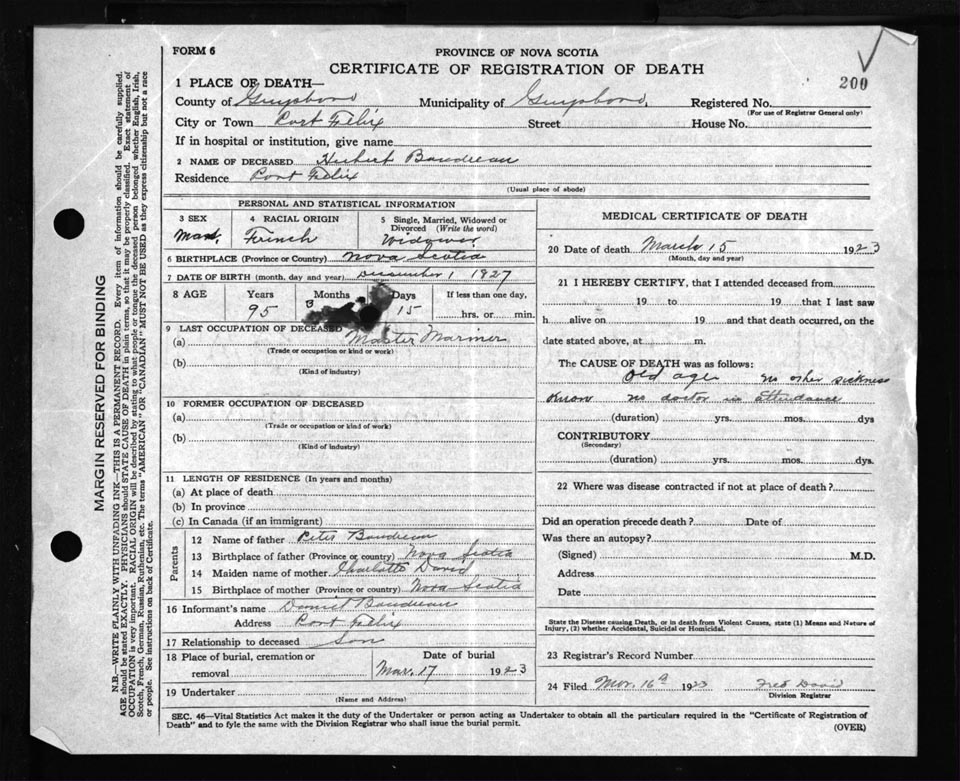 200
FORM 6
PROVINCE OF NOVA SCOTIA
CERTIFICATE OF REGISTRATION OF DEATH
1 PLACE OF DEATH—
County of Guysboro Municipality of Guysboro. Registered No.
(For use of Registrar General only)
City or Town Port Felix Street House No.
If in hospital or institution, give name
2 NAME OF DECEASED Hubert Boudreau
Residence Port Felix
(Usual place of abode)
PERSONAL AND STATISTICAL INFORMATION
3 SEX 4 RACIAL ORIGIN 5 Single, Married, Widowed or Divorced (Write the word)
French Widower
6 BIRTHPLACE (Province or Country) Nova Scotia
7 DATE OF BIRTH (month, day and year) December 1 1927
8 AGE Years Months Days If less than one day,
95 3 15 hrs. or min.
9 LAST OCCUPATION OF DECEASED
(a) Master Mariner
(Trade or occupation or kind or work)
(b)
(Kind of industry)
10 FORMER OCCUPATION OF DECEASED
(a)
(Trade or occupation or kind of work)
(b)
(Kind of industry)
11 LENGTH OF RESIDENCE (In years and months)
(a) At place of death
(b) In province
(c) In Canada (if an immigrant)
Parents
12 Name of father Peter Boudreau
13 Birthplace of father (Province or country) Nova Scotia
14 Maiden name of mother Charlotte David
15 Birthplace of mother (Province or country) Nova Scotia
16 Informant's name Daniel Boudreau
Address Port Felix
17 Relationship to deceased Son
18 Place of burial, cremation or removal Date of burial
Mar. 17 1923
19 Undertaker
(Name and Address)
MEDICAL CERTIFICATE OF DEATH
20 Date of death March 15 1923
(Month, day and year)
21 I HEREBY CERTIFY, that I attended deceased from
19 to 19 that I last saw
h alive on 19 and that death occurred, on the
date stated above, at m.
The CAUSE OF DEATH was as follows:
Old age no other sickness
know no doctor in attendance
(duration) yrs. mos. dys
CONTRIBUTORY
(Secondary)
(duration) yrs. mos. dys.
22 Where was disease contracted if not at place of death?
Did an operation precede death? Date of
Was there an autopsy?
(Signed) M.D.
Address
Date
State the Disease causing Death, or in death from Violent Causes, state (1) Means and Nature of
Injury, (2) whether Accidental, Suicidal or Homicidal.
23 Registrar's Record Number
24 Filed Mar. 16th 1923 Fred David
Division Registrar
SEC. 46—Vital Statistics Act makes it the duty of the Undertaker or person acting as Undertaker to obtain all the particulars required in the "Certificate of Registration of
Death" and to fyle the same with the Division Registrar who shall issue the burial permit.
(OVER)
MARGIN RESERVED FOR BINDING
N.B.—WRITE PLAINLY WITH UNFADING INK—THIS IS A PERMANENT RECORD. Every item of information should be carefully supplied.
AGE should be stated EXACTLY. PHYSICIANS should STATE CAUSE OF DEATH in plain terms, so that it may be properly classified. Exact statement of
OCCUPATION is very important. RACIAL ORIGIN will be described by stating to what people or tongue the deceased person belonged whether English, Irish,
Scotch, French, German, Russian, Ruthenian, etc. The terms "AMERICAN" OR "CANADIAN" MUST NOT BE USED as they express citizenship but not a race
or people. See instructions on back of Certificate.